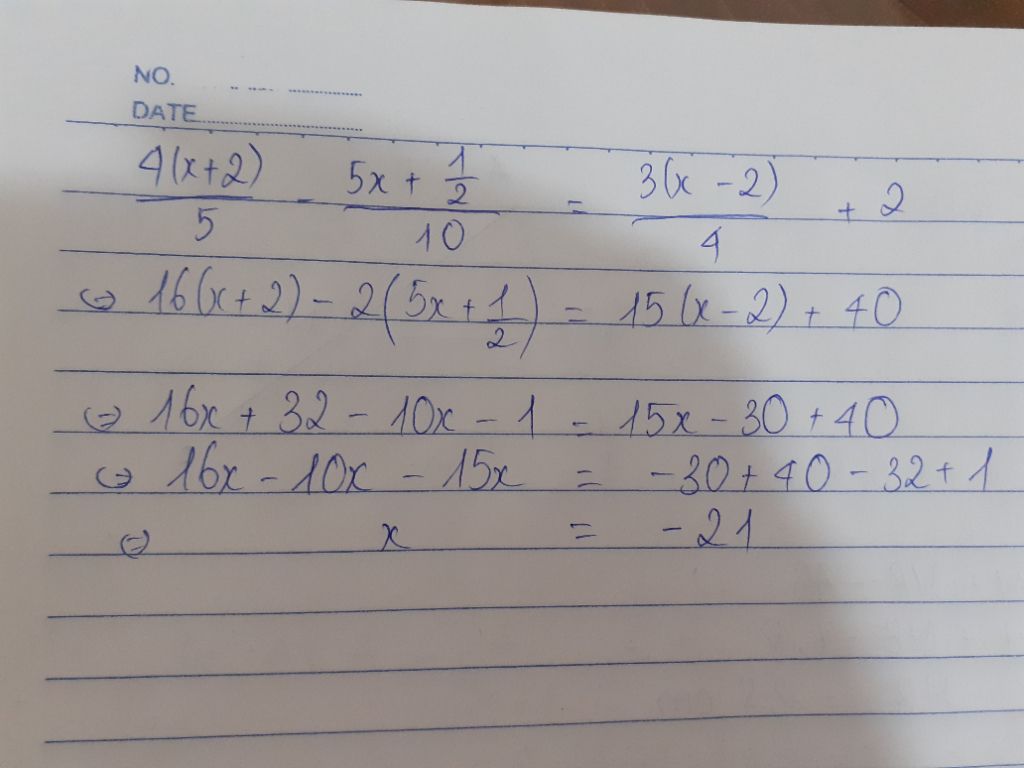 NO.
DATE
4(x+2)/5 - (5x + 1/2)/10 = 3(x - 2)/4 + 2
⇔ 16(x+2) - 2(5x + 1/2) = 15(x - 2) + 40
⇔ 16x + 32 - 10x - 1 = 15x - 30 + 40
⇔ 16x - 10x - 15x = -30 + 40 - 32 + 1
⇔ x = -21